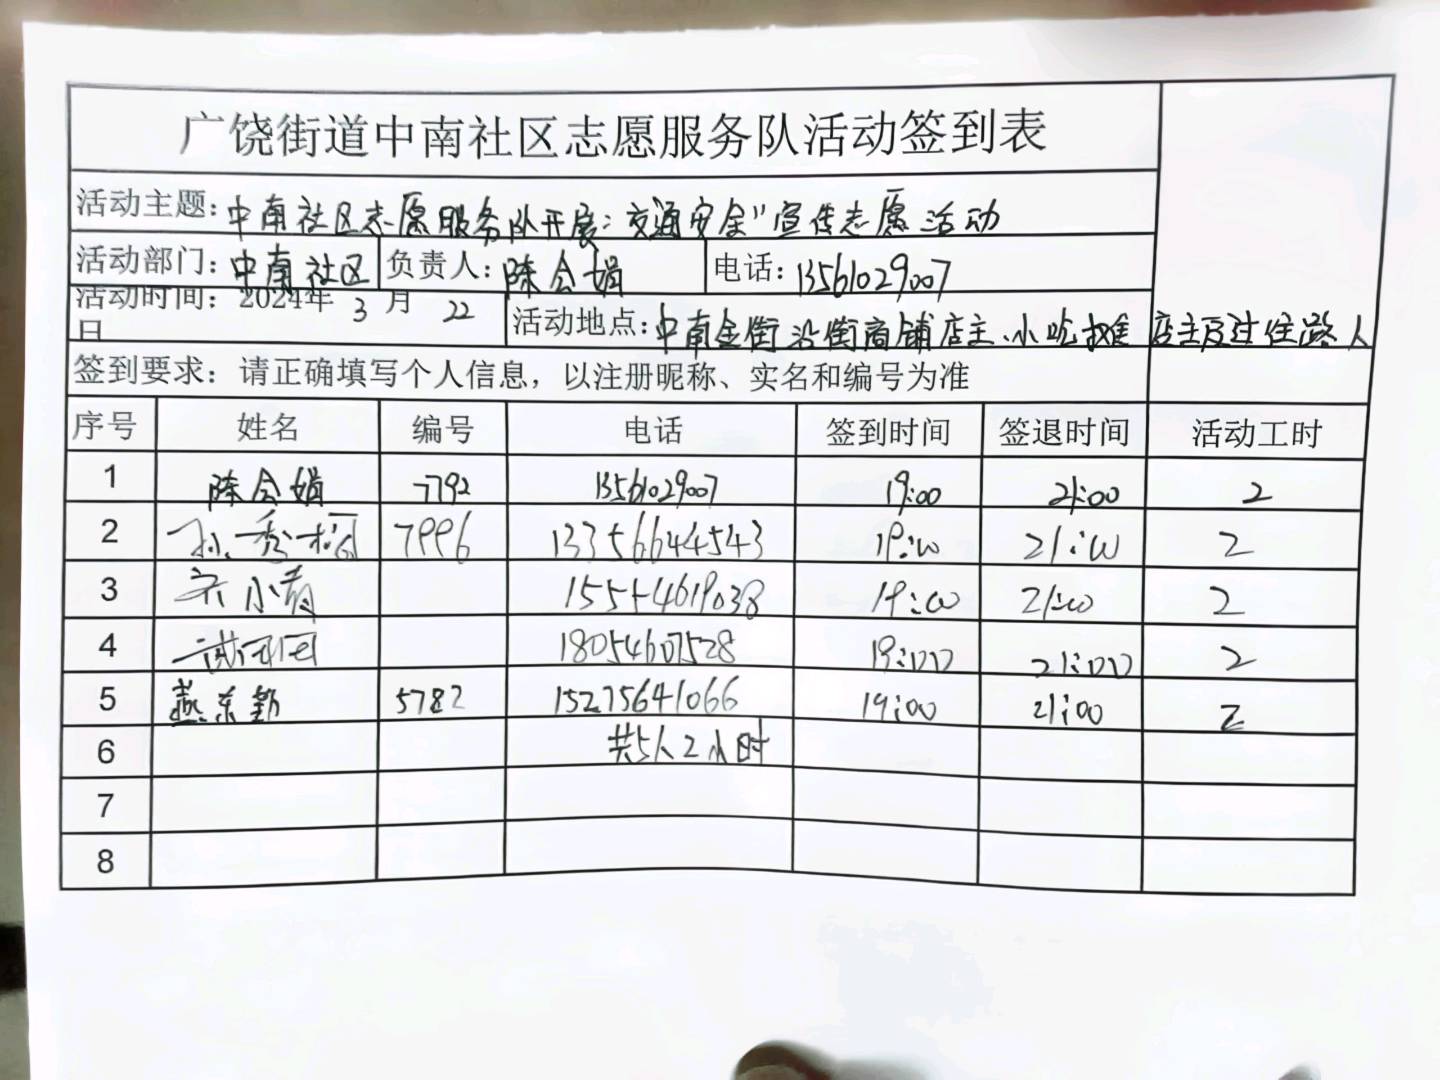 广饶街道中南社区志愿服务队活动签到表
活动主题：中南社区志愿服务队开展“交通安全”宣传志愿活动
活动部门：中南社区 负责人：陈会娟 电话：13561029007
活动时间：2024年 3 月 22
日
活动地点：中南金街沿街商铺店主、小吃摊店主及过往路人
签到要求：请正确填写个人信息，以注册昵称、实名和编号为准
序号 姓名 编号 电话 签到时间 签退时间 活动工时
1 陈会娟 7792 13561029007 19:00 21:00 2
2 孙秀 7996 13356644543 19:00 21:00 2
3 小青 15554619038 19:00 21:00 2
4 18054607528 19:00 21:00 2
5 燕东勤 5782 15275641066 19:00 21:00 2
6 共5人2小时
7
8